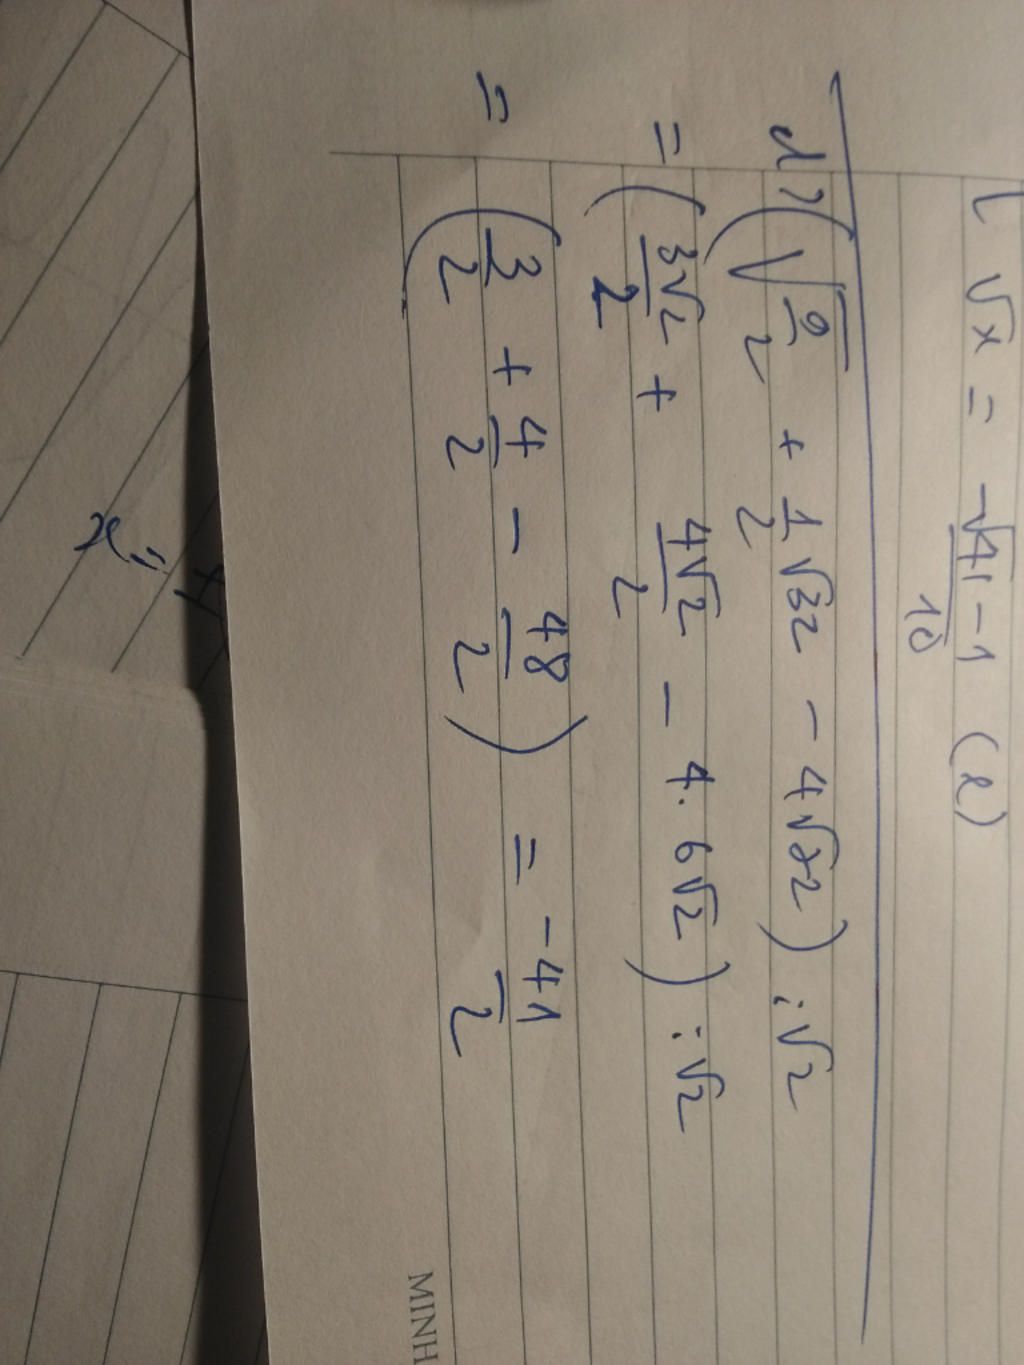 √x = -√41 - 1 / 10 (l)
d) (√(9/2) + 1/2 √32 - 4√82) : √2
= (3√2/2 + 4√2/2 - 4.6√2) : √2
= (3/2 + 4/2 - 48/2) = -41/2
x =
MINH